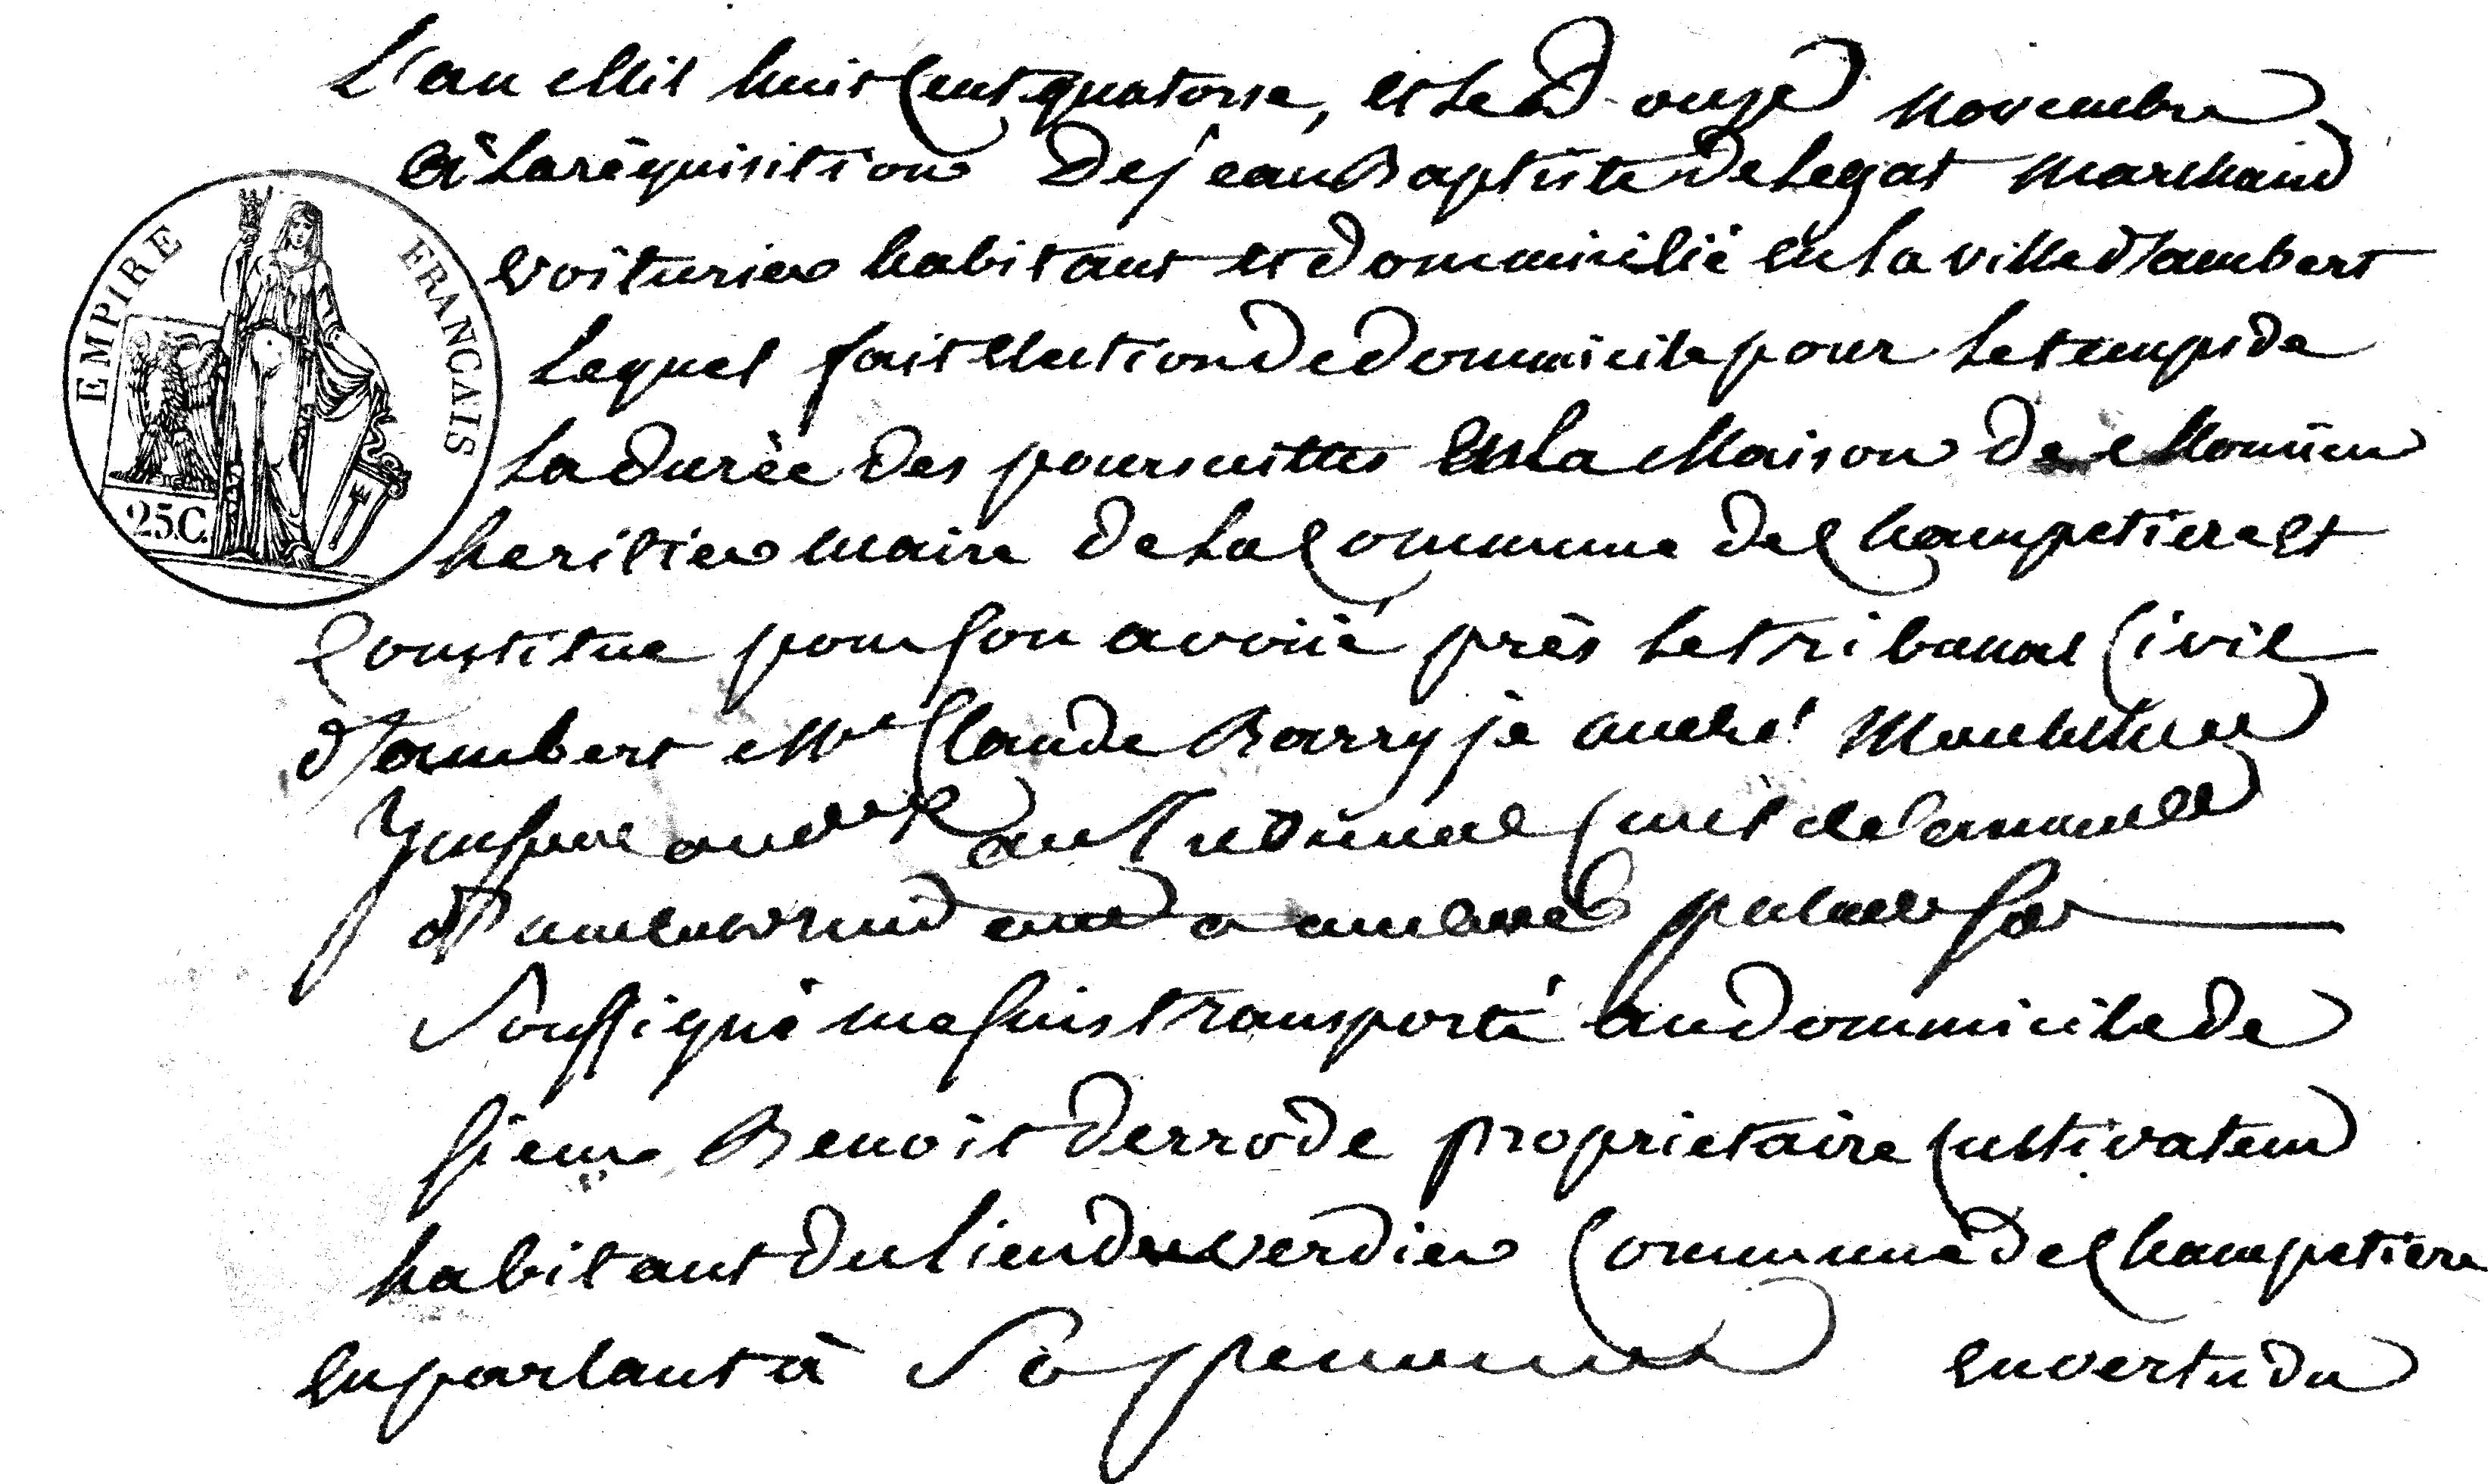 L'an Mil huit Cent quatorse, et le onze Novembre
à la réquisition de jean Baptiste de Legat Marchand
voiturier habitant et domminilié en la ville d'ambert
EMPIRE FRANÇAIS
Lequel fait Election de domicile pour le temps de
La durée des poursuittes En La Maison de
25C.
heritier maire de la Commune de Champetiere Et
Constitue pour son avoüé près le tribunal Civil
d'ambert Me Claude Barry je André
au Tribunal
Soussigné me suis transporté au dommicile de
sieur Benoit derrode proprietaire Cultivateur
habitant du lieu du verdier Commune de Champetiere
En parlant à Sa personne En vertu du